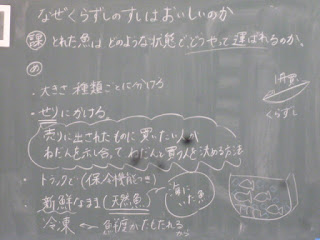 なぜくらずしのすしはおいしいのか
課 とれた魚は、どのような状態で、どうやって運ばれるのか。
め
・大きさ 種類ごとに分ける
・せりにかける
売りに出されたものに買いたい人が
ねだんを示し合って ねだんと買う人を決める方法
・トラックで(保冷機能つき)
・新鮮なまま(天然魚)
海に
いた魚
冷凍
くらずし